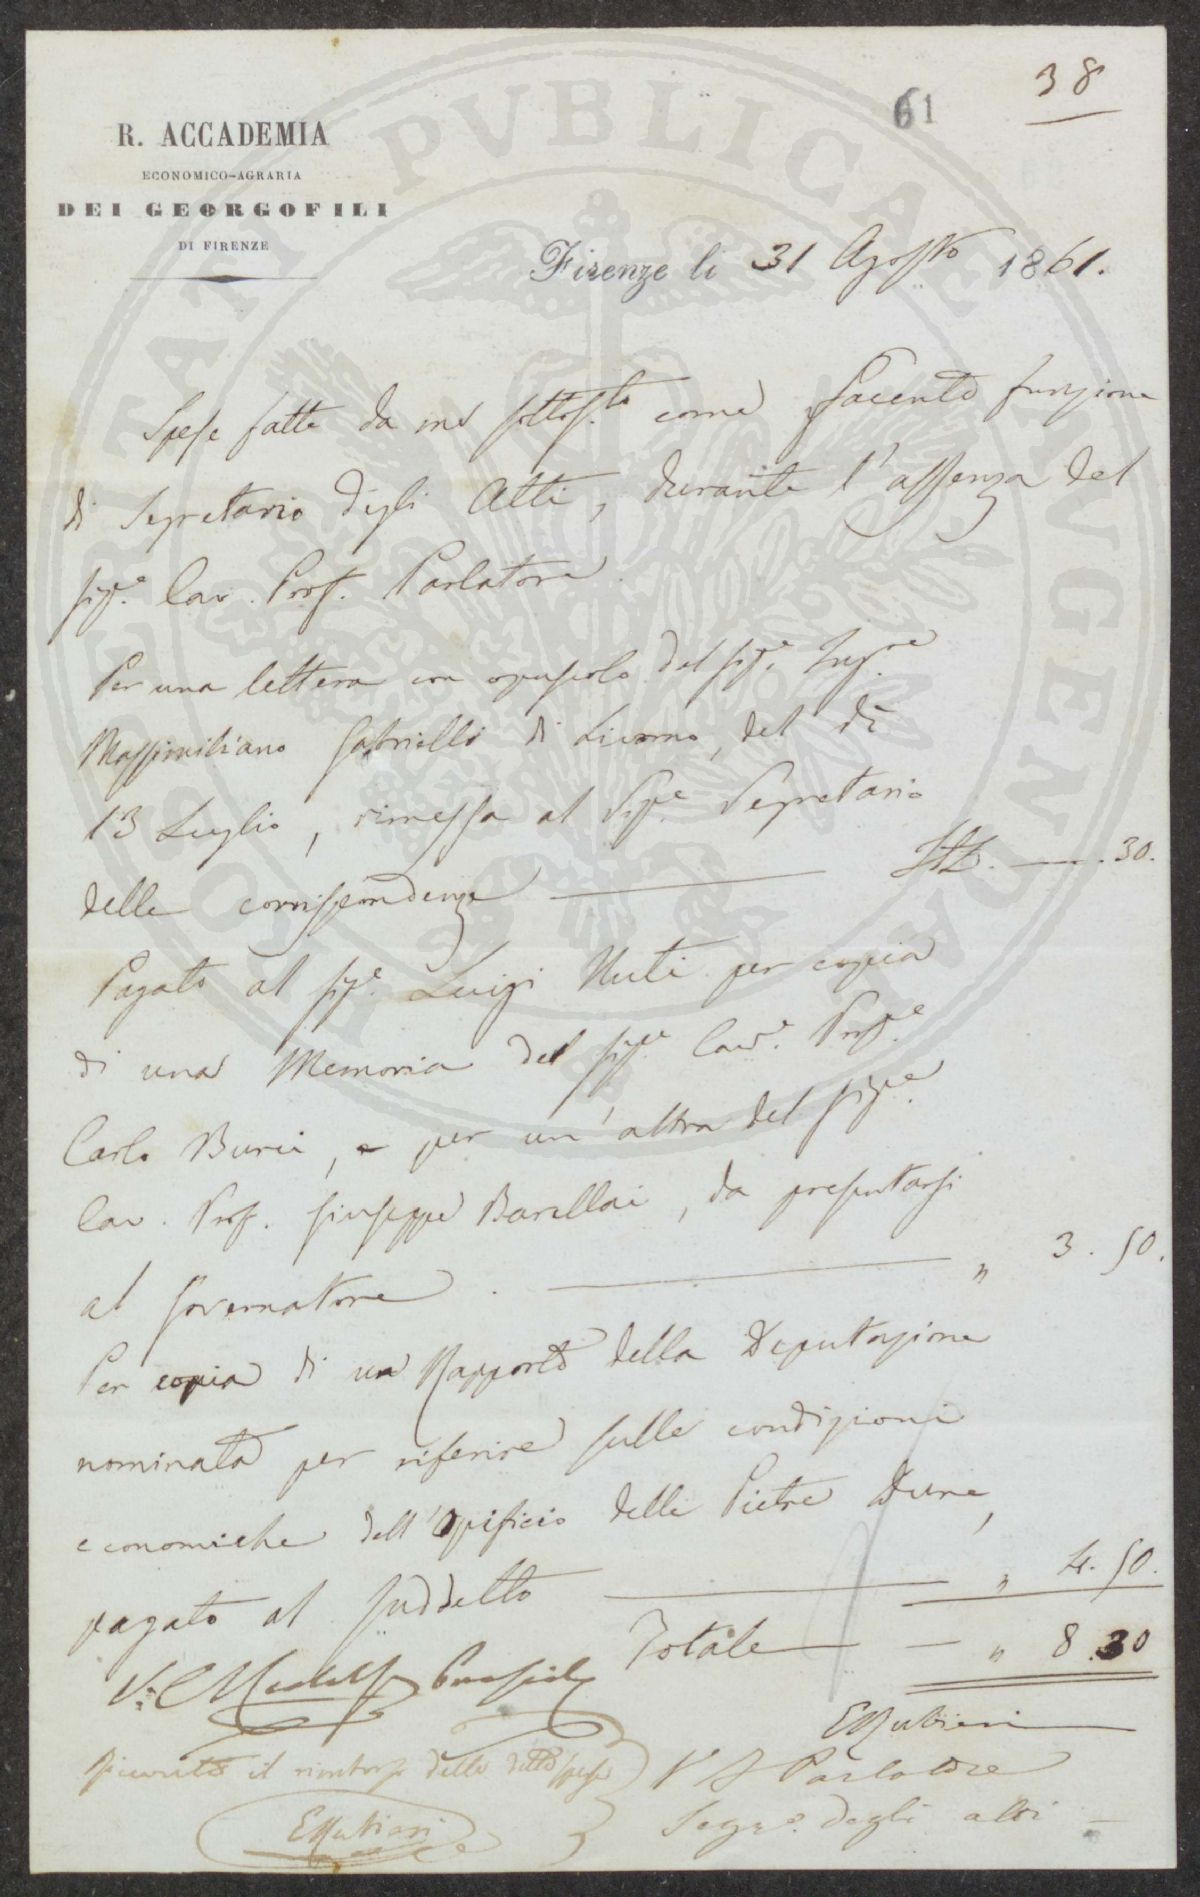 38
61
R. ACCADEMIA
ECONOMICO-AGRARIA
DEI GEORGOFILI
DI FIRENZE
Firenze li 31 Agosto 1861.
Spese fatte da me sottos.to come facente funzione
di Segretario degli Atti, durante l'assenza del
sig.e Cav. Prof. Parlatore.
Per una lettera con opuscolo del sig.e Ing.re
Massimiliano Gabrielli di Livorno, del dì
13 Luglio, rimessa al Sig.e Segretario
delle corrispondenze — — . 30.
Pagato al sig.e Luigi Nuti per copia
di una Memoria del sig.e Cav.e Prof.e
Carlo Burci, e per un'altra del sig.e
Cav. Prof. Giuseppe Barellai, da presentarsi
al Governatore . — „ 3 . 50.
Per copia di un Rapporto della Deputazione
nominata per riferire sulle condizioni
economiche dell'Opificio delle Pietre Dure,
pagato al suddetto — „ 4. 50.
Totale — — „ 8. 30
E Rubieri
V. Presid
Ricevuto il rimborso delle dette spese
E Rubieri
V F Parlatore
Segr.o degli atti —
PVBLICAE